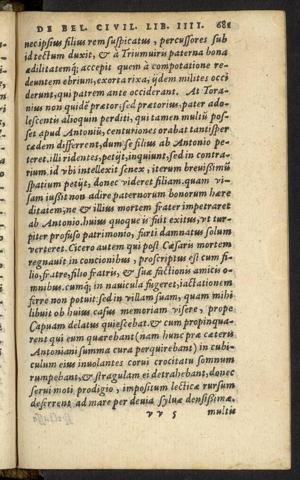 DE BEL. CIVIL. LIB. IIII. 681
nec ipsius filius rem suspicatus, percussores sub
id tectum duxit, & à Triumuiris paterna bona
ædilitatemq́; accepit quem à compotatione re-
deuntem ebrium, exorta rixa, ijdem milites occi
derunt, qui patrem ante occiderant. At Tora-
nius non quidē prætor, sed prætorius, pater ado-
lescentis alioquin perditi, qui tamen multū pos-
set apud Antoniū, centuriones orabat tantisper
cædem differrent, dum se filius ab Antonio pe-
teret. illi ridentes, petijt, inquiunt, sed in contra-
rium. id vbi intellexit senex, iterum breuissimū
spatium petijt, donec videret filiam. quam vi-
sam iussit non adire paternorum bonorum hære
ditatem, ne & illius mortem frater impetraret
ab Antonio. huius quoque is fuit exitus, vt tur-
piter profuso patrimonio, furti damnatus solum
verteret. Cicero autem qui post Cæsaris mortem
regnauit in concionibus, proscriptus est cum fi-
lio, fratre, filio fratris, & suæ factionis amicis o-
mnibus. cumq́; in nauicula fugeret, iactationem
ferre non potuit: sed in villam suam, quam mihi
libuit ob huius casus memoriam visere, prope
Capuam delatus quiescebat. & cum propinqua-
rent qui eum quærebant (nam hunc præ cæteris
Antoniani summa cura perquirebant) in cubi-
culum eius inuolantes corui crocitatu somnum
rumpebant, & stragulam ei detrahebant, donec
serui moti prodigio, impositum lecticæ rursum
deferrent ad mare per deuia syluæ densissimæ.
v v 5 multis